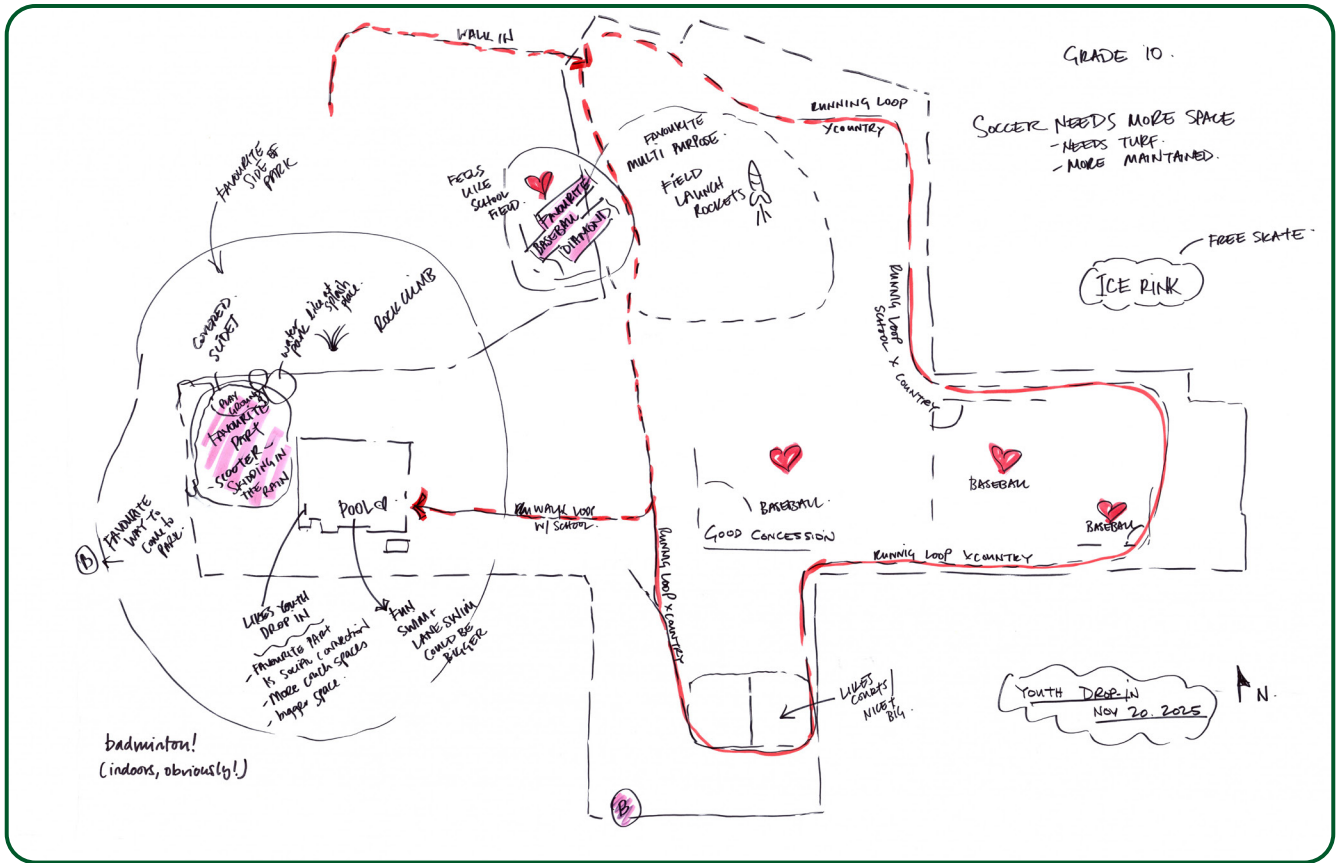 WALK IN
GRADE 10.
SOCCER NEEDS MORE SPACE
- NEEDS TURF.
- MORE MAINTAINED.
RUNNING LOOP
XCOUNTRY
FAVOURITE
MULTI PURPOSE
FIELD
LAUNCH
ROCKETS
FEELS
LIKE
SCHOOL
FIELD.
FAVOURITE
BASEBALL
DIAMOND
FAVOURITE
SIDE OF
PARK
FREE SKATE
ICE RINK
COVERED
SLIDES
water
park like at
splash
place.
ROCK CLIMB
RUNNIG LOOP
SCHOOL X COUNTRY
PLAY
GROUND
FAVOURITE
PART
- SCOOTER -
- SKIDDING IN
THE RAIN
POOL
WALK LOOP
W/ SCHOOL.
BASEBALL
GOOD CONCESSION
BASEBALL
BASEBALL
RUNNIG LOOP XCOUNTRY
FAVOURITE
WAY TO
COME TO
PARK
B
RUNNIG LOOP XCOUNTRY
LIKES YOUTH
DROP IN
- FAVOURITE PART
IS SOCIAL CONNECTION
- MORE COUCH SPACES
- bigger space.
FUN
SWIM +
LANE SWIM
COULD BE
BIGGER
LIKES
COURTS/
NICE +
BIG.
YOUTH DROP-IN
NOV 20. 2025
N.
badminton!
(indoors, obviously!)
B